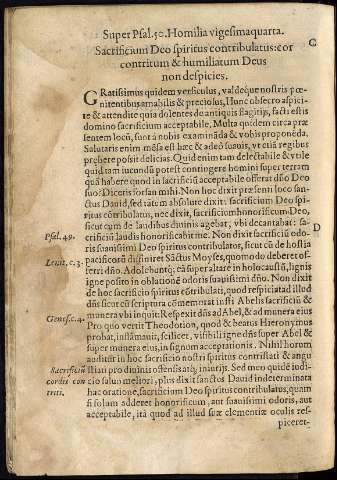 Super Psal. 50. Homilia vigesimaquarta.
Sacrificium Deo spiritus contribulatus: cor
C
contritum & humiliatum Deus
non despicies.
GRatissimus quidem versiculus, valdéque nostris pœ-
nitentibus amabilis & preciosus, Hunc obsecro aspici-
te & attendite quia dolentes de antiquis flagitijs, facti estis
domino sacrificium acceptabile. Multa quidem circa præ-
sentem locũ, sunt à nobis examinãda & vobis proponẽda.
Salutaris enim mẽsa est hæc & adeò suauis, vt etiã regibus
præbere possit delicias. Quid enim tam delectabile & vtile
quid tam iucundũ potest contingere homini super terram
quã habere quod in sacrificiũ acceptabile offerat dño Deo
suo? Diceris forsan mihi. Non hoc dixit præsenti loco san-
ctus Dauid, sed tãtum absolute dixit: sacrificium Deo spi-
ritus cõtribulatus, nec dixit, sacrificium honorificum Deo,
sicut cum de laudibus diuinis agebat, vbi decantabat: sa-
D
Psal. 49.
crificiũ laudis honorificabit me. Non dixit sacrificiũ odo-
ris suauissimi Deo spiritus contribulatus, sicut cũ de hostia
Leuit. c. 3.
pacificorũ disseruit Sãctus Moyses, quomodo deberet of-
ferri dño. Adolebuntq; eã super altare in holocaustũ, lignis
igne posito in oblationẽ odoris suauissimi dño. Non dixit
de hoc sacrificio spiritus cõtribulati, quod respiciat ad illud
dñs sicut cũ scriptura cõmemorat insti Abelis sacrificiũ &
Genes. c. 4.
munera vbi inquit: Respexit dñs ad Abel, & ad munera eius
Pro quo vertit Theodotion, quod & beatus Hieronymus
probat, inflammauit, scilicet, visibili igne dñs super Abel &
super munera eius, in signum acceptationis. Nihil horum
auditur in hoc sacrificio nostri spiritus contristati & angu
Sacrificiũ
stiati pro diuinis
Sed meo quidẽ iudi-
cordis con
cio salus meliori, plus dixit sanctus Dauid indeterminata
triti.
hac oratione, sacrificium Deo spiritus contribulatus, quam
si solum adderet honorificum, aut suauissimi odoris, aut
acceptabile, ità quod ad illud suæ clementiæ oculis res-
piceret-